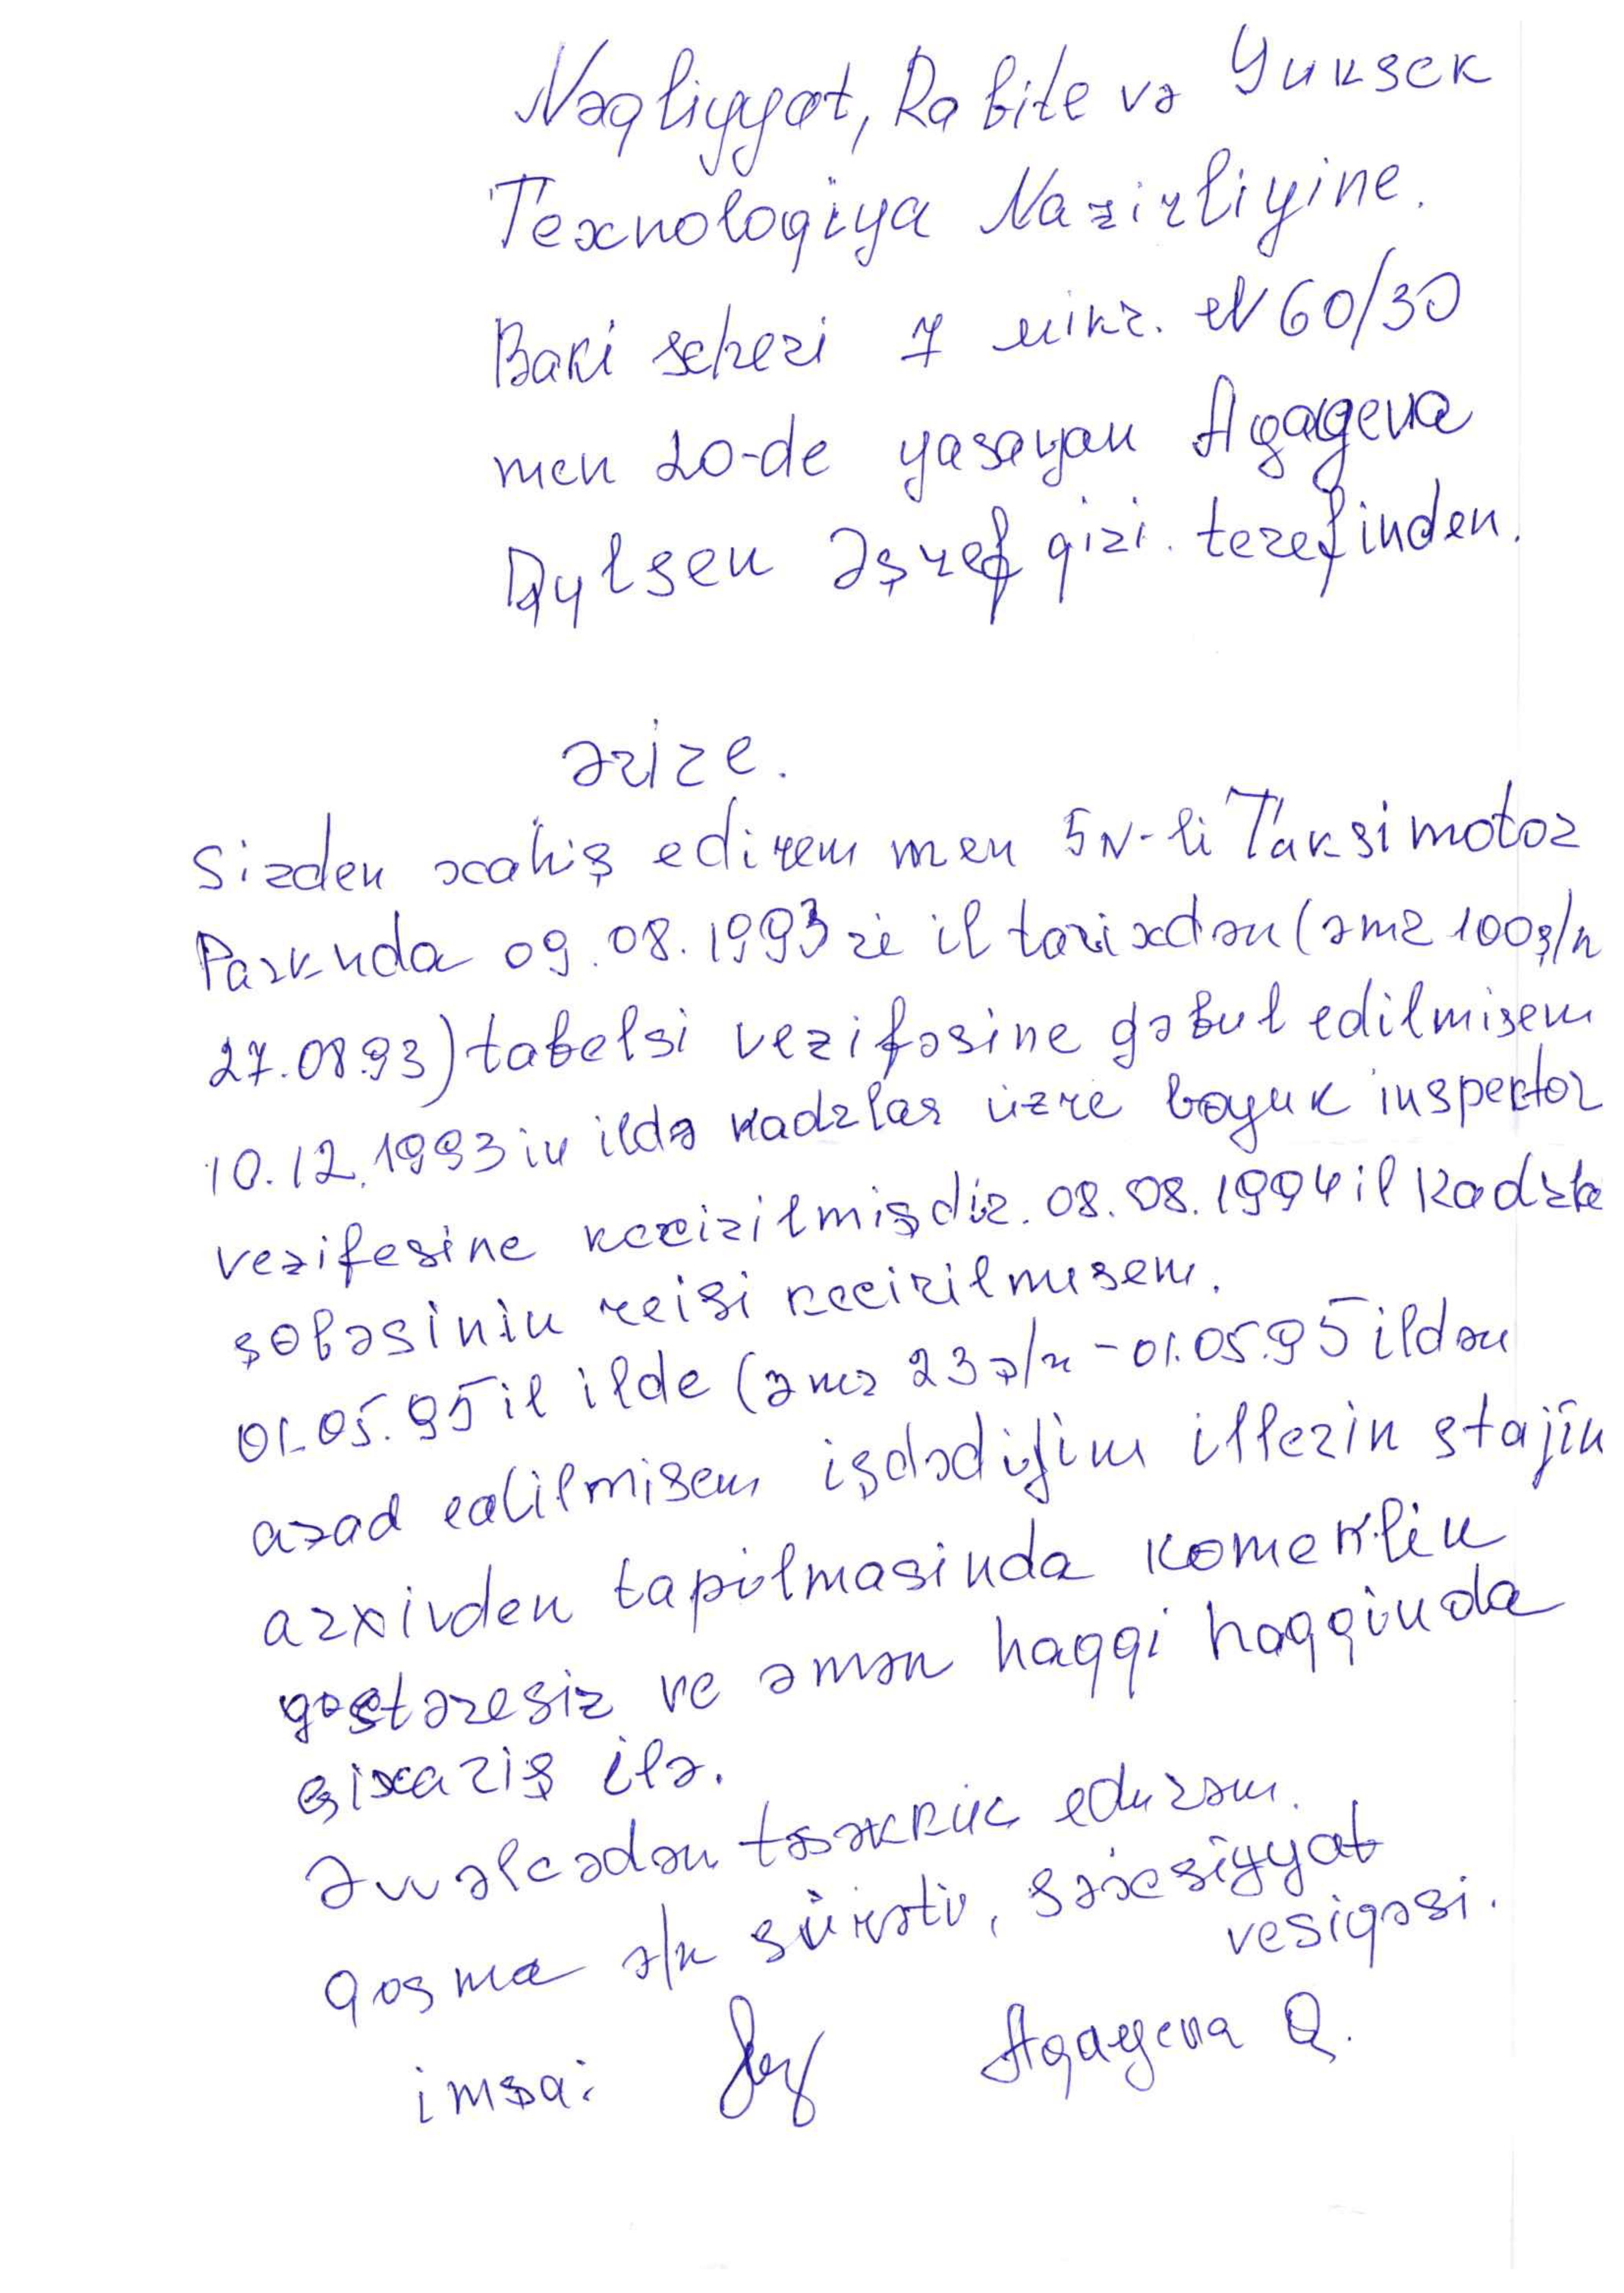 Nəqliyyat, Rabite və Yuksek
Texnologiya Nazirliyine.
Baki seheri 7 mikr. N 60/30
men 20-de yasayan Agayeva
Gylsen Əşref qizi. terefinden.
ərize.
Sizden xahiş edirem men 5N-li Taksimotor
Parkında 09.08.1993 il tarixdən (əmr 100ş/n
27.08.93) tabelsi vezifəsine qəbul edilmisem
10.12.1993 in ildə kadrlar üzre boyuk inspektor
vezifesine kecirilmişdir. 08.08.1994 il Kadrlar
şobəsinin reisi kecirilmisem.
01.05.95 il ilde (əmr 23 ə/n - 01.05.95 ildən
azad edilmisem işdədiyim illerin stajin
arxivden tapilmasinda komeklik
gostəresiz ve əmən haqqi haqqinda
çixariş ilə.
Əvvəlcədən təşəkkür edirəm.
Qosma ə/k sürəti, səxsiyyət
vesiqəsi.
imza: Agayeva Q.